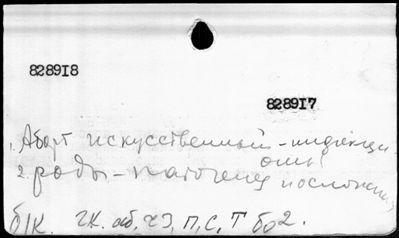 828918
828917
1. Аборт искусственный - индекции
2. роды - патогенез
б/к. гк. об, чз, п, с, т бо2.